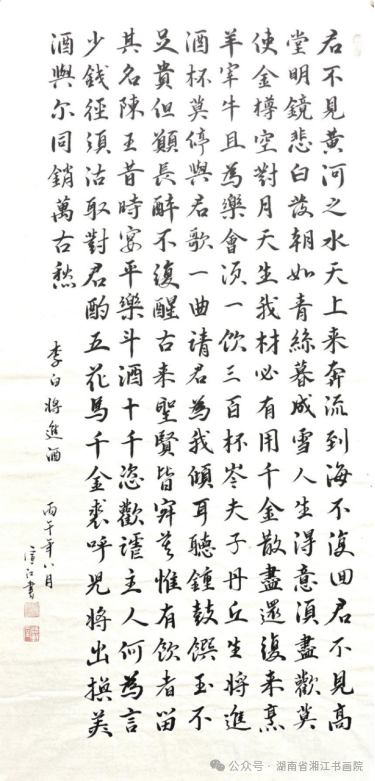 君不見黃河之水天上来奔流到海不復回君不見高
堂明鏡悲白发朝如青絲暮成雪人生得意須盡歡莫
使金樽空對月天生我材必有用千金散盡還復来烹
羊宰牛且為樂會須一飲三百杯岑夫子丹丘生將進
酒杯莫停與君歌一曲請君為我傾耳聽鐘鼓饌玉不
足貴但願長醉不復醒古来聖賢皆寂寞惟有飲者留
其名陳王昔時宴平樂斗酒十千恣歡謔主人何為言
少錢徑須沽取對君酌五花馬千金裘呼兒將出換美
酒與尔同銷萬古愁
李白將進酒
丙午年八月
江書
公众号·湖南省湘江书画院